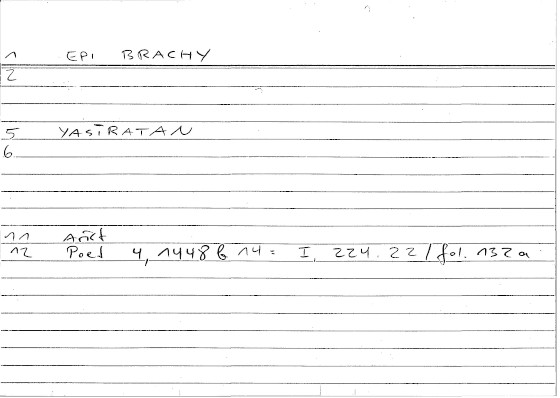 1 EPI BRACHY
2
5 YASTRATAN
6
11 Arist
12 Poet 4, 1448 b 14 = I, 224.22 / fol. 132a